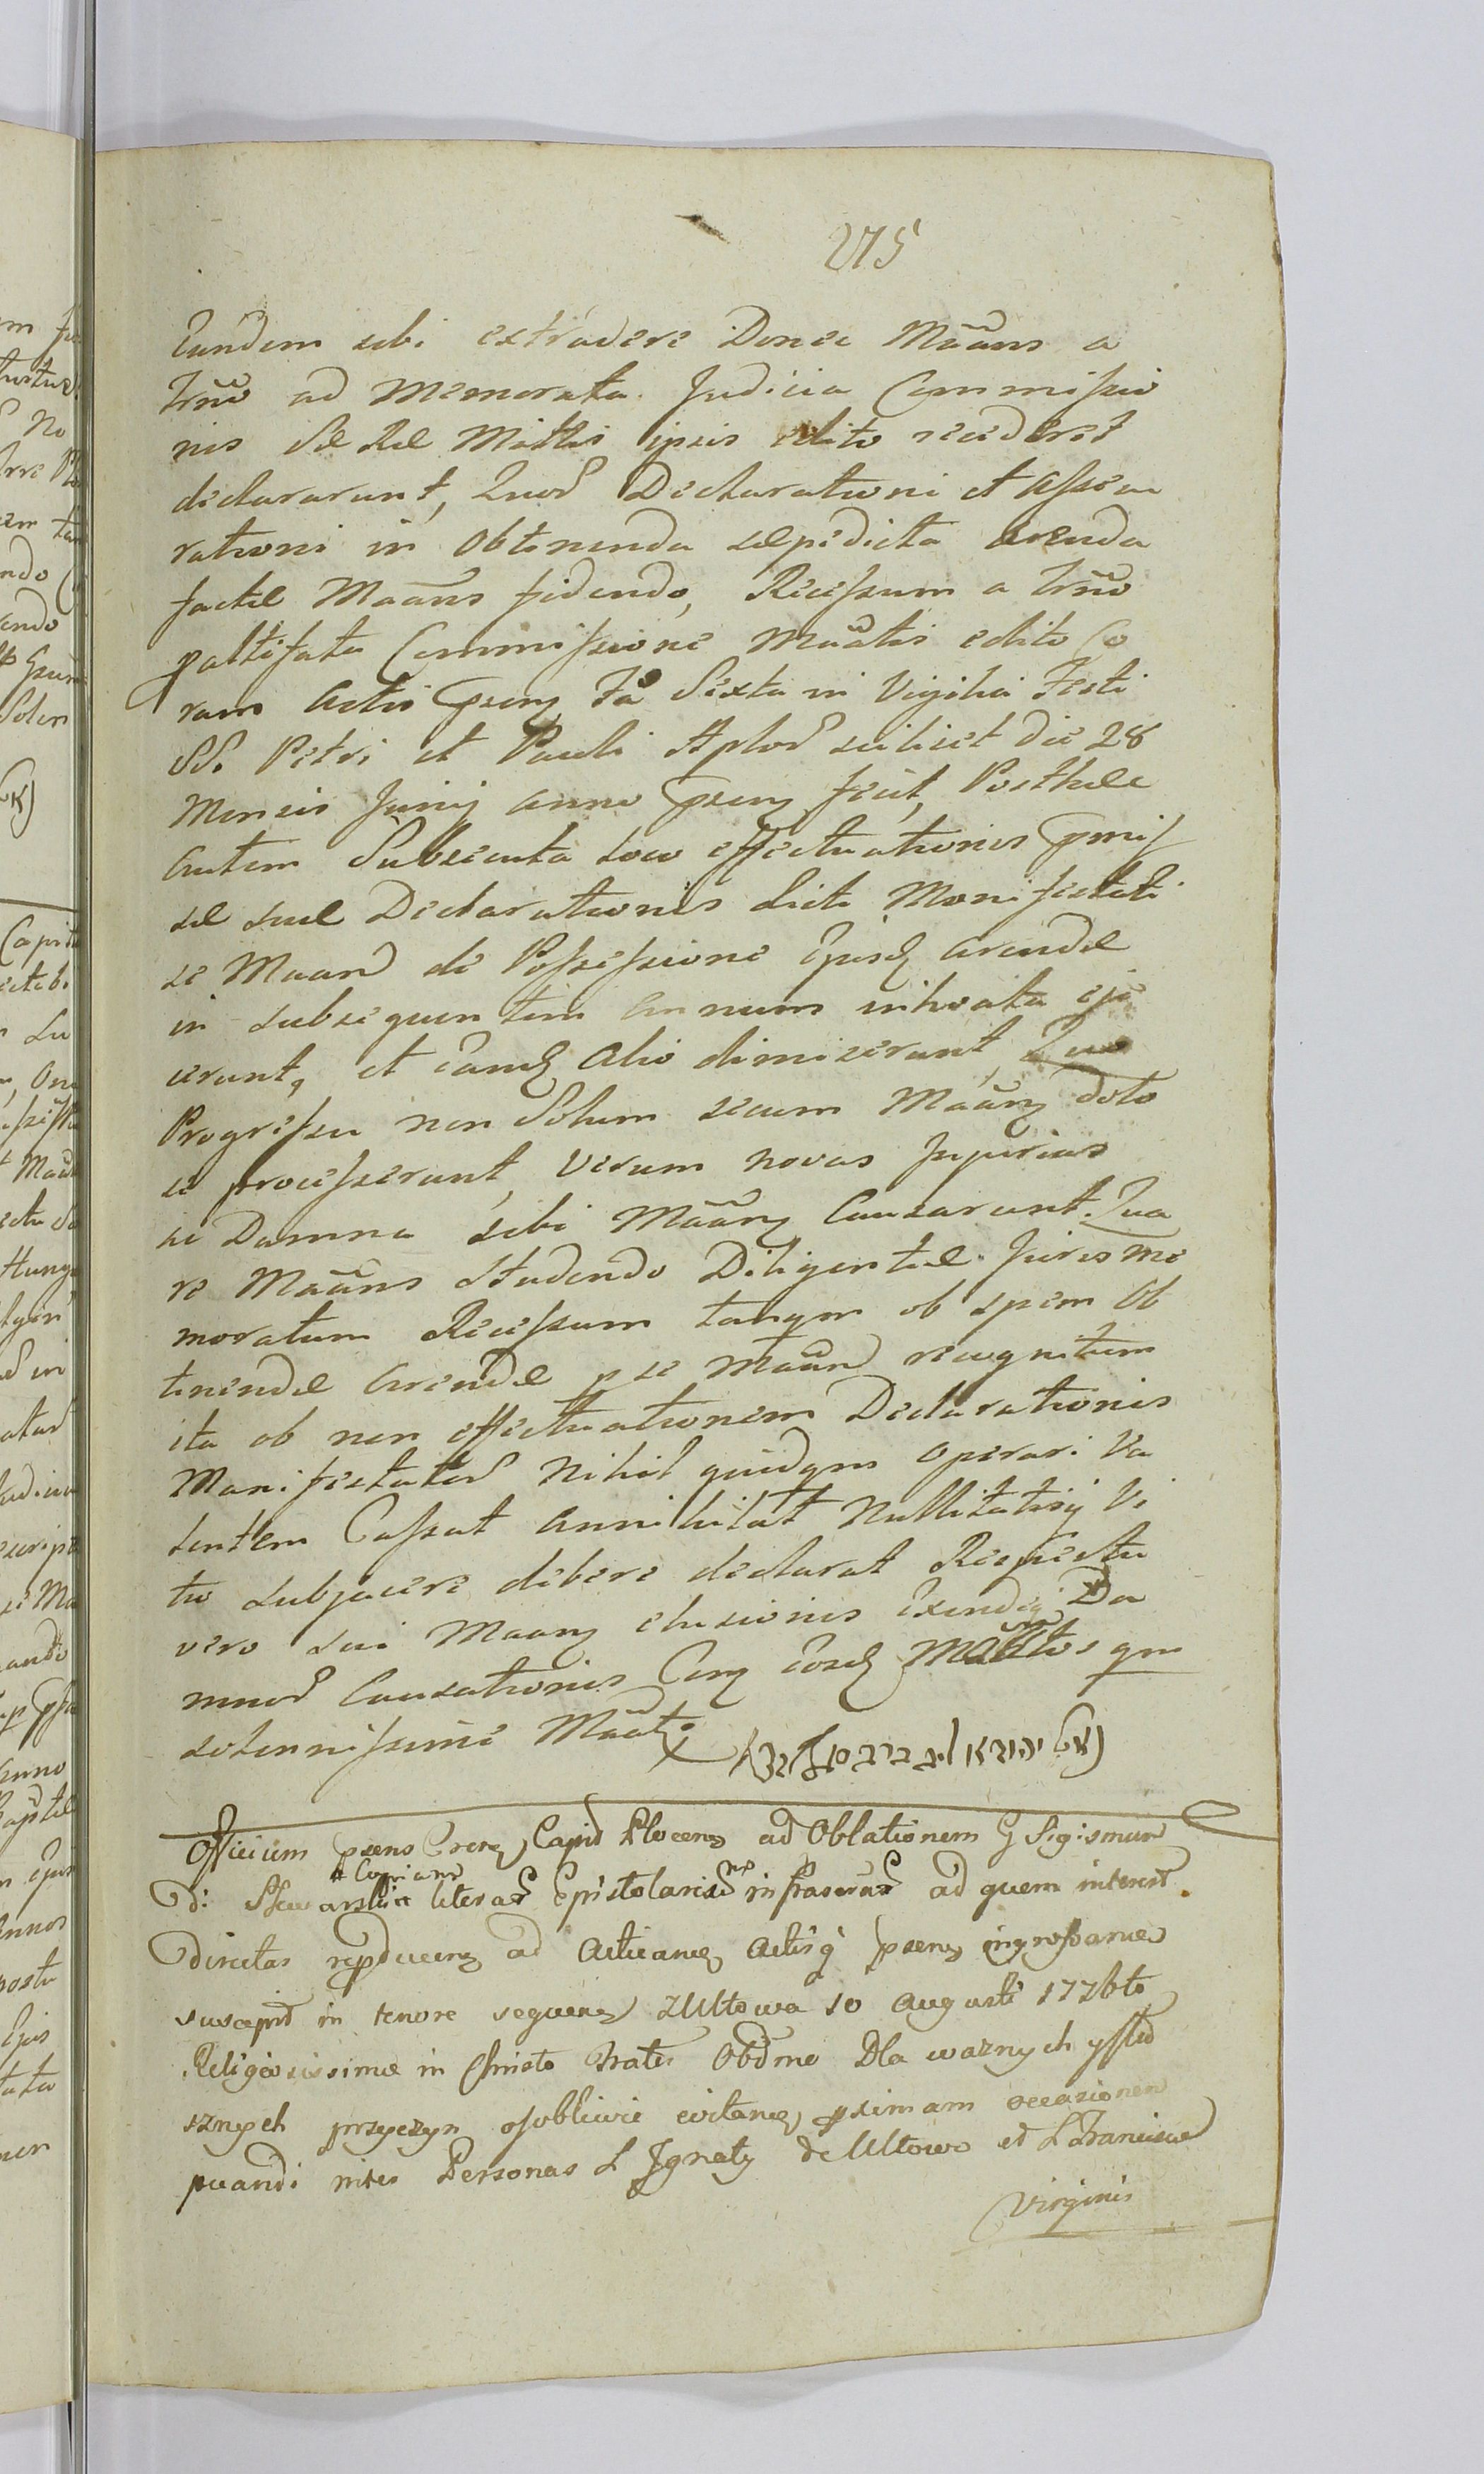 275
Eundem sibi extradere Donec Maans a
Trno ad Memorata Judicia Commissio
nis Sae Rae Mattis ipsis edito recederet
declararunt, Quod Declarationi et Assecu
rationi in Obtinenda saepedicta arenda
factae Maans fidendo, Recessum a Trno
paltifata Commissione Maatis edito Co
ram Actis psenz fa Sexta in Vigilia Festi
SS. Petri et Pauli Aplor scilicet die 28
Mensis Junij Anno psenz fecit, Posthac
Autem Subsecuta loco effectuationis pmis
sae suae Declarationis dicti Manifestati
se Maand de Possessione Ejusd Arendae
in subsequentem Annum inhoata eje
cerunt, et Eamd Alio dimiserunt, Quo
Progressu non Solum secum Maanz dolo
se processerunt, Verum novas Injurias
ac Damna sibi Maanz Causarunt. Qua
re Maans Studendo Diligentiae Juris me
moratum Recessum tanqm ob spem Ob
tinendae Arendae p se Maand recognitum
ita ob non effectuationem Declarationis
Manifestator Nihil quidqm operari Va
lentem Cassat Annihilat Nullitatisq Vi
tio subjacere debere declarat Respectu
vero sui Maanz elusionis Da
mnor Causationis Conz eosd Maattos qm
solennissime Maat
Officium psens Crenz Capid Plocenz ad Oblationem G Sigismun
Copiam
di literar Epistolarium infrascrar ad quem interest
directas repducenz ad Acticand Actisq psenz ingrossand
suscepit in tenore sequenz Z Ultowa 10 Augusti 1776to
Religiosissime in Christo Frater Obdme Dla waznych y slu
sznych przyczyn osobliwie evitand pximam occasionem
peandi inter Personas S Ignaty de Ultowo et S Francisce
Virginis